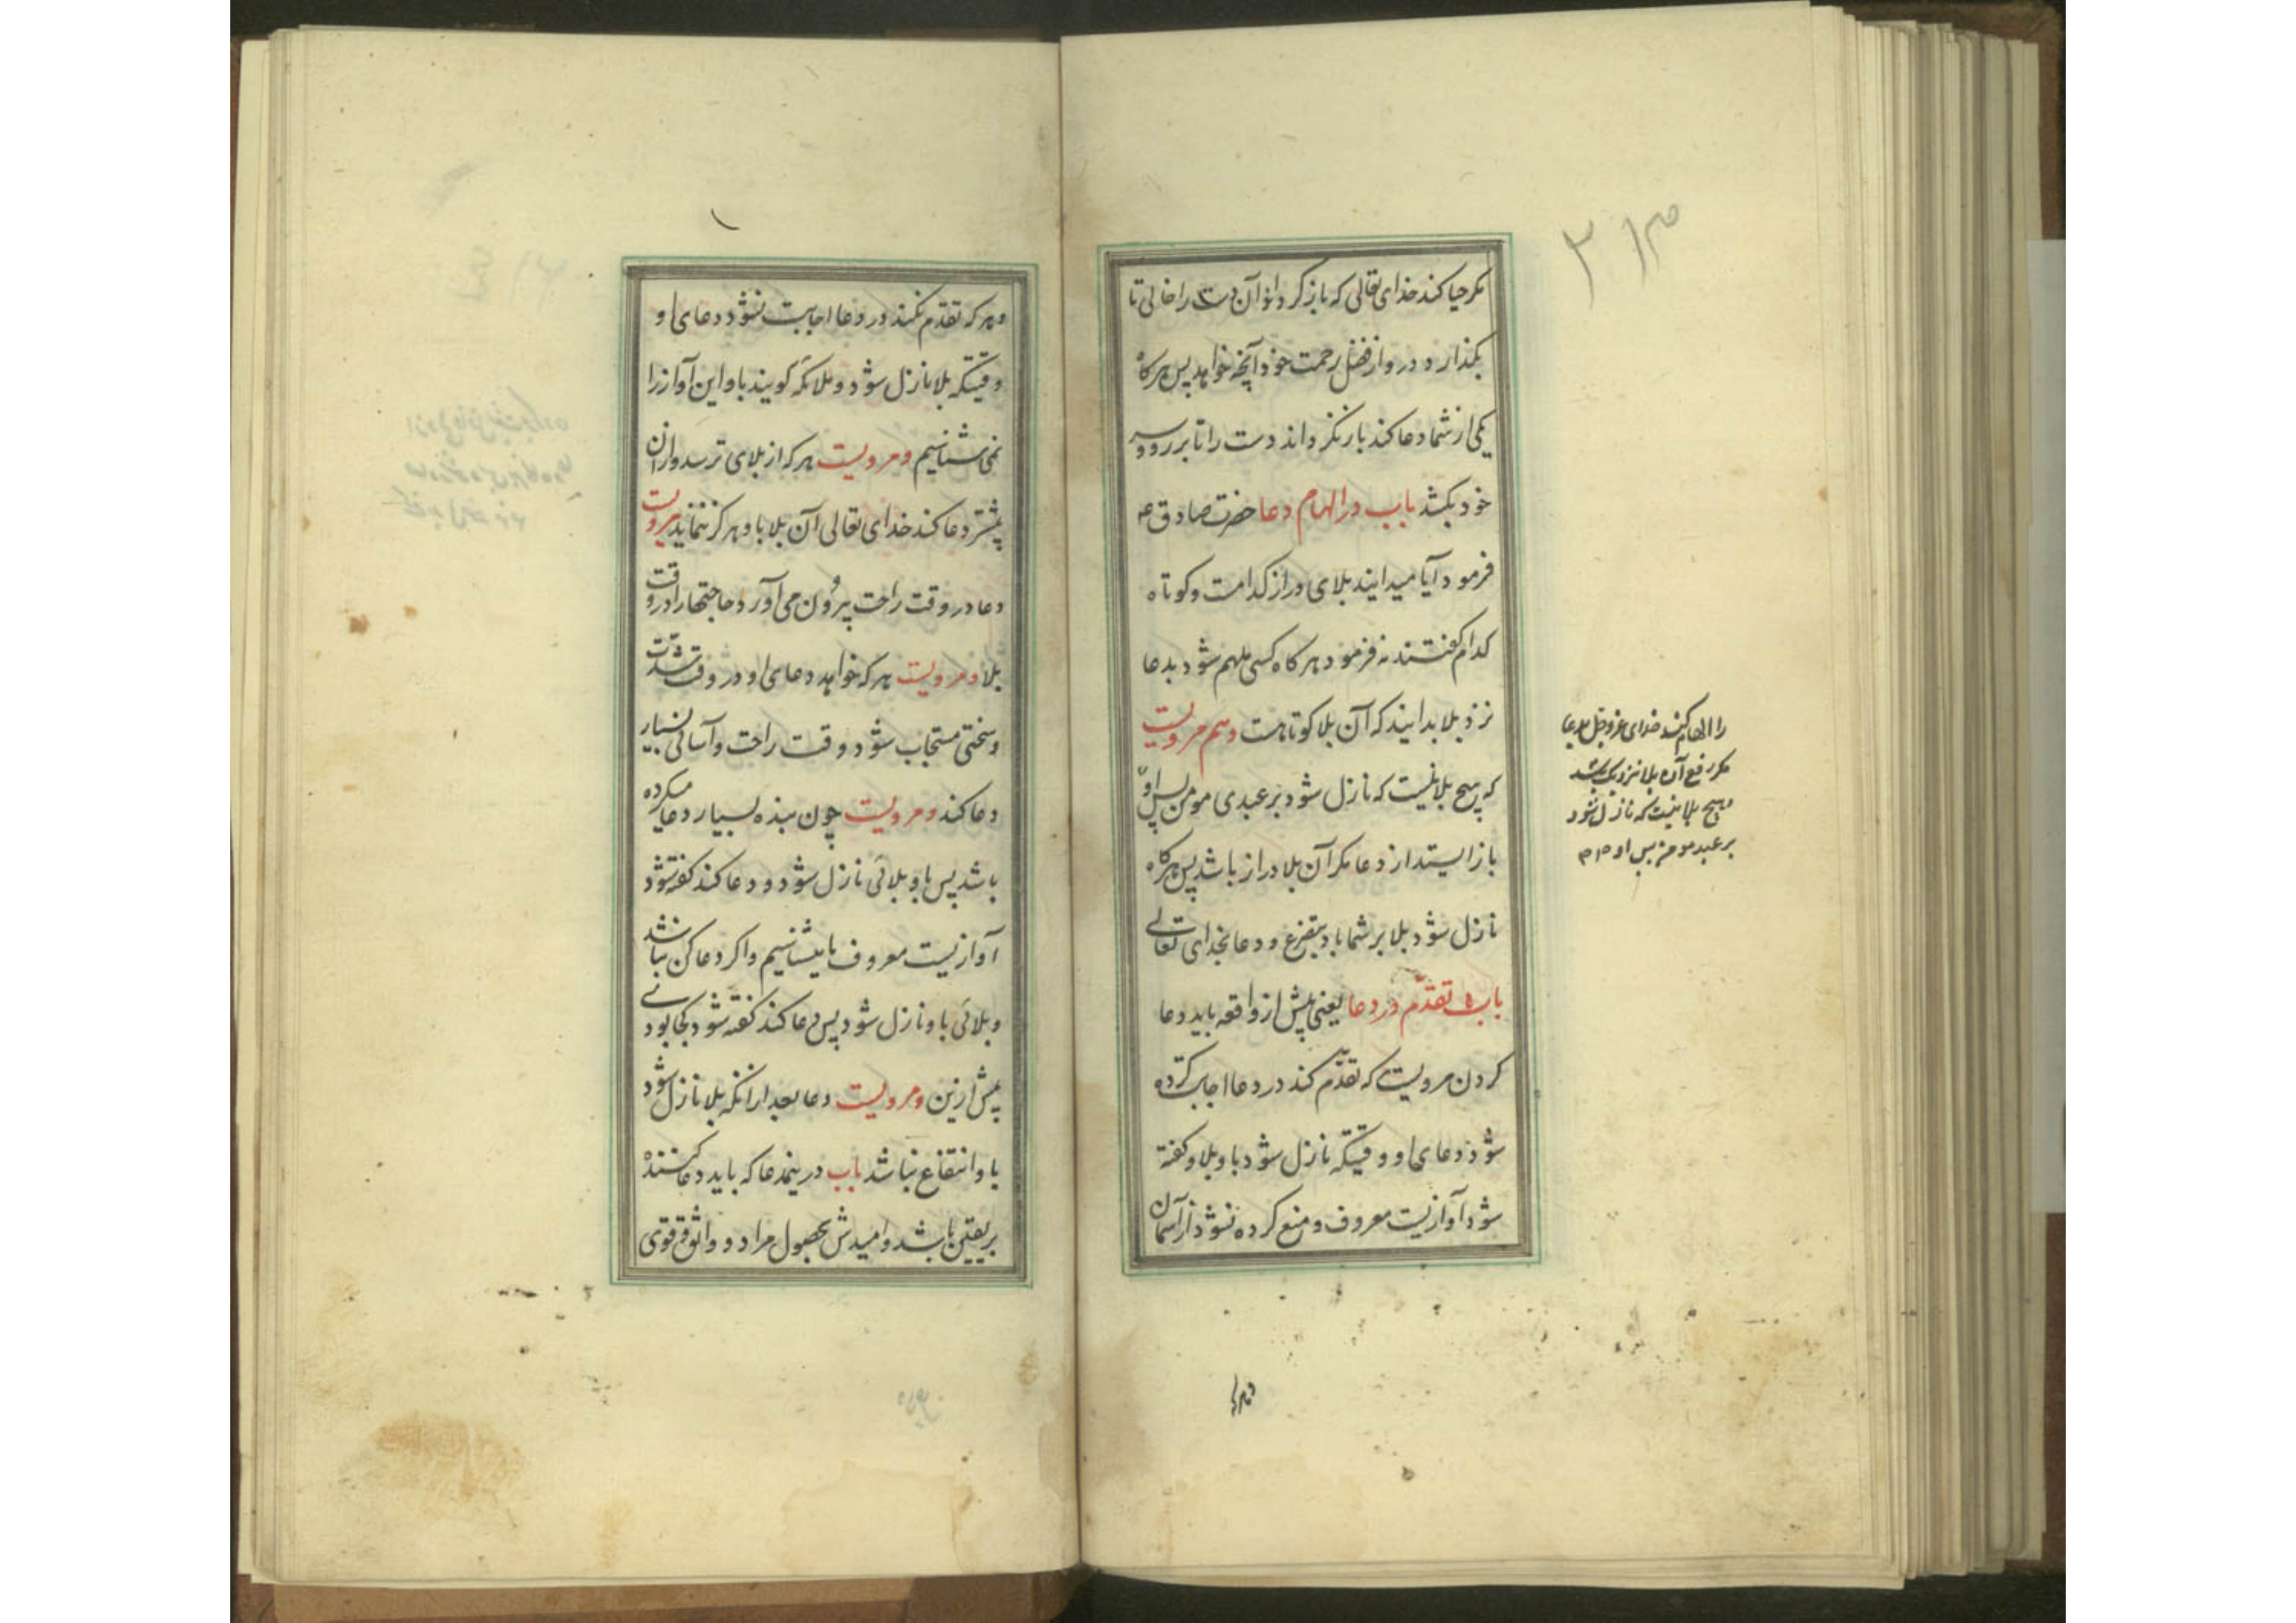 مکر حیا کند خدای تعالی که باز کرداند آن دست را خالی تا
بکذارد در و از فضل رحمت خود آنچه خواهد پس هرکاه
یکی از شما دعا کند باز نکرداند دست را تا بر رو و سر
خود بکشد باب در الهام دعا حضرت صادق ع
فرمود آیا میدانید بلای دراز کدامست و کوتاه
کدام کفتند نه فرمود هرکاه کسی ملهم شود بدعا
نزد بلا بدانید که آن بلا کوتاهست و هم مرویست
که هیچ بلا نیست که نازل شود بر عبدی مومن پس او
باز ایستد از دعا مکر آن بلا دراز باشد پس هرکاه
نازل شود بلا بر شما باد بتضرع و دعا بخدای تعالی
باب تقدّم در دعا یعنی پیش از واقعه باید دعا
کردن مرویست که تقدّم کند در دعا اجابت کرده
شود دعای او وقتیکه نازل شود باو بلا و کفته
شود آوازیست معروف و منع کرده نشود از آسمان
را الهام کند خدای عز و جل بدعا
مکر رفع آن بلا نزدیک باشد
و هیچ بلا نیست که نازل شود
بر عبد مومن پس او
و هر که
و هر که تقدّم نکند در دعا اجابت نشود دعای او
وقتیکه بلا نازل شود و ملائکه کویند باو این آواز را
نمی شناسیم و مرویست هر که از بلای ترسد و از آن
پیشتر دعا کند خدای تعالی آن بلا باو هرکز ننماید مرویست
دعا در وقت راحت بیرون می آورد حاجتها را در وقت
بلا و مرویست هر که خواهد دعای او در وقت شدّت
و سختی مستجاب شود وقت راحت و آسانی بسیار
دعا کند و مرویست چون بنده بسیار دعا میکرده
باشد پس باو بلائی نازل شود و دعا کند کفته شود
آوازیست معروف ما میشناسیم و اکر دعا کن نباشد
و بلائی باو نازل شود پس دعا کند کفته شود کجا بودی
پیش ازین و مرویست دعا بعد از انکه بلا نازل شود
باو انتفاع نباشد باب در ینمدعا که باید دعا کننده
بر یقین باشد و امیدش بحصول مراد و واثق قوی